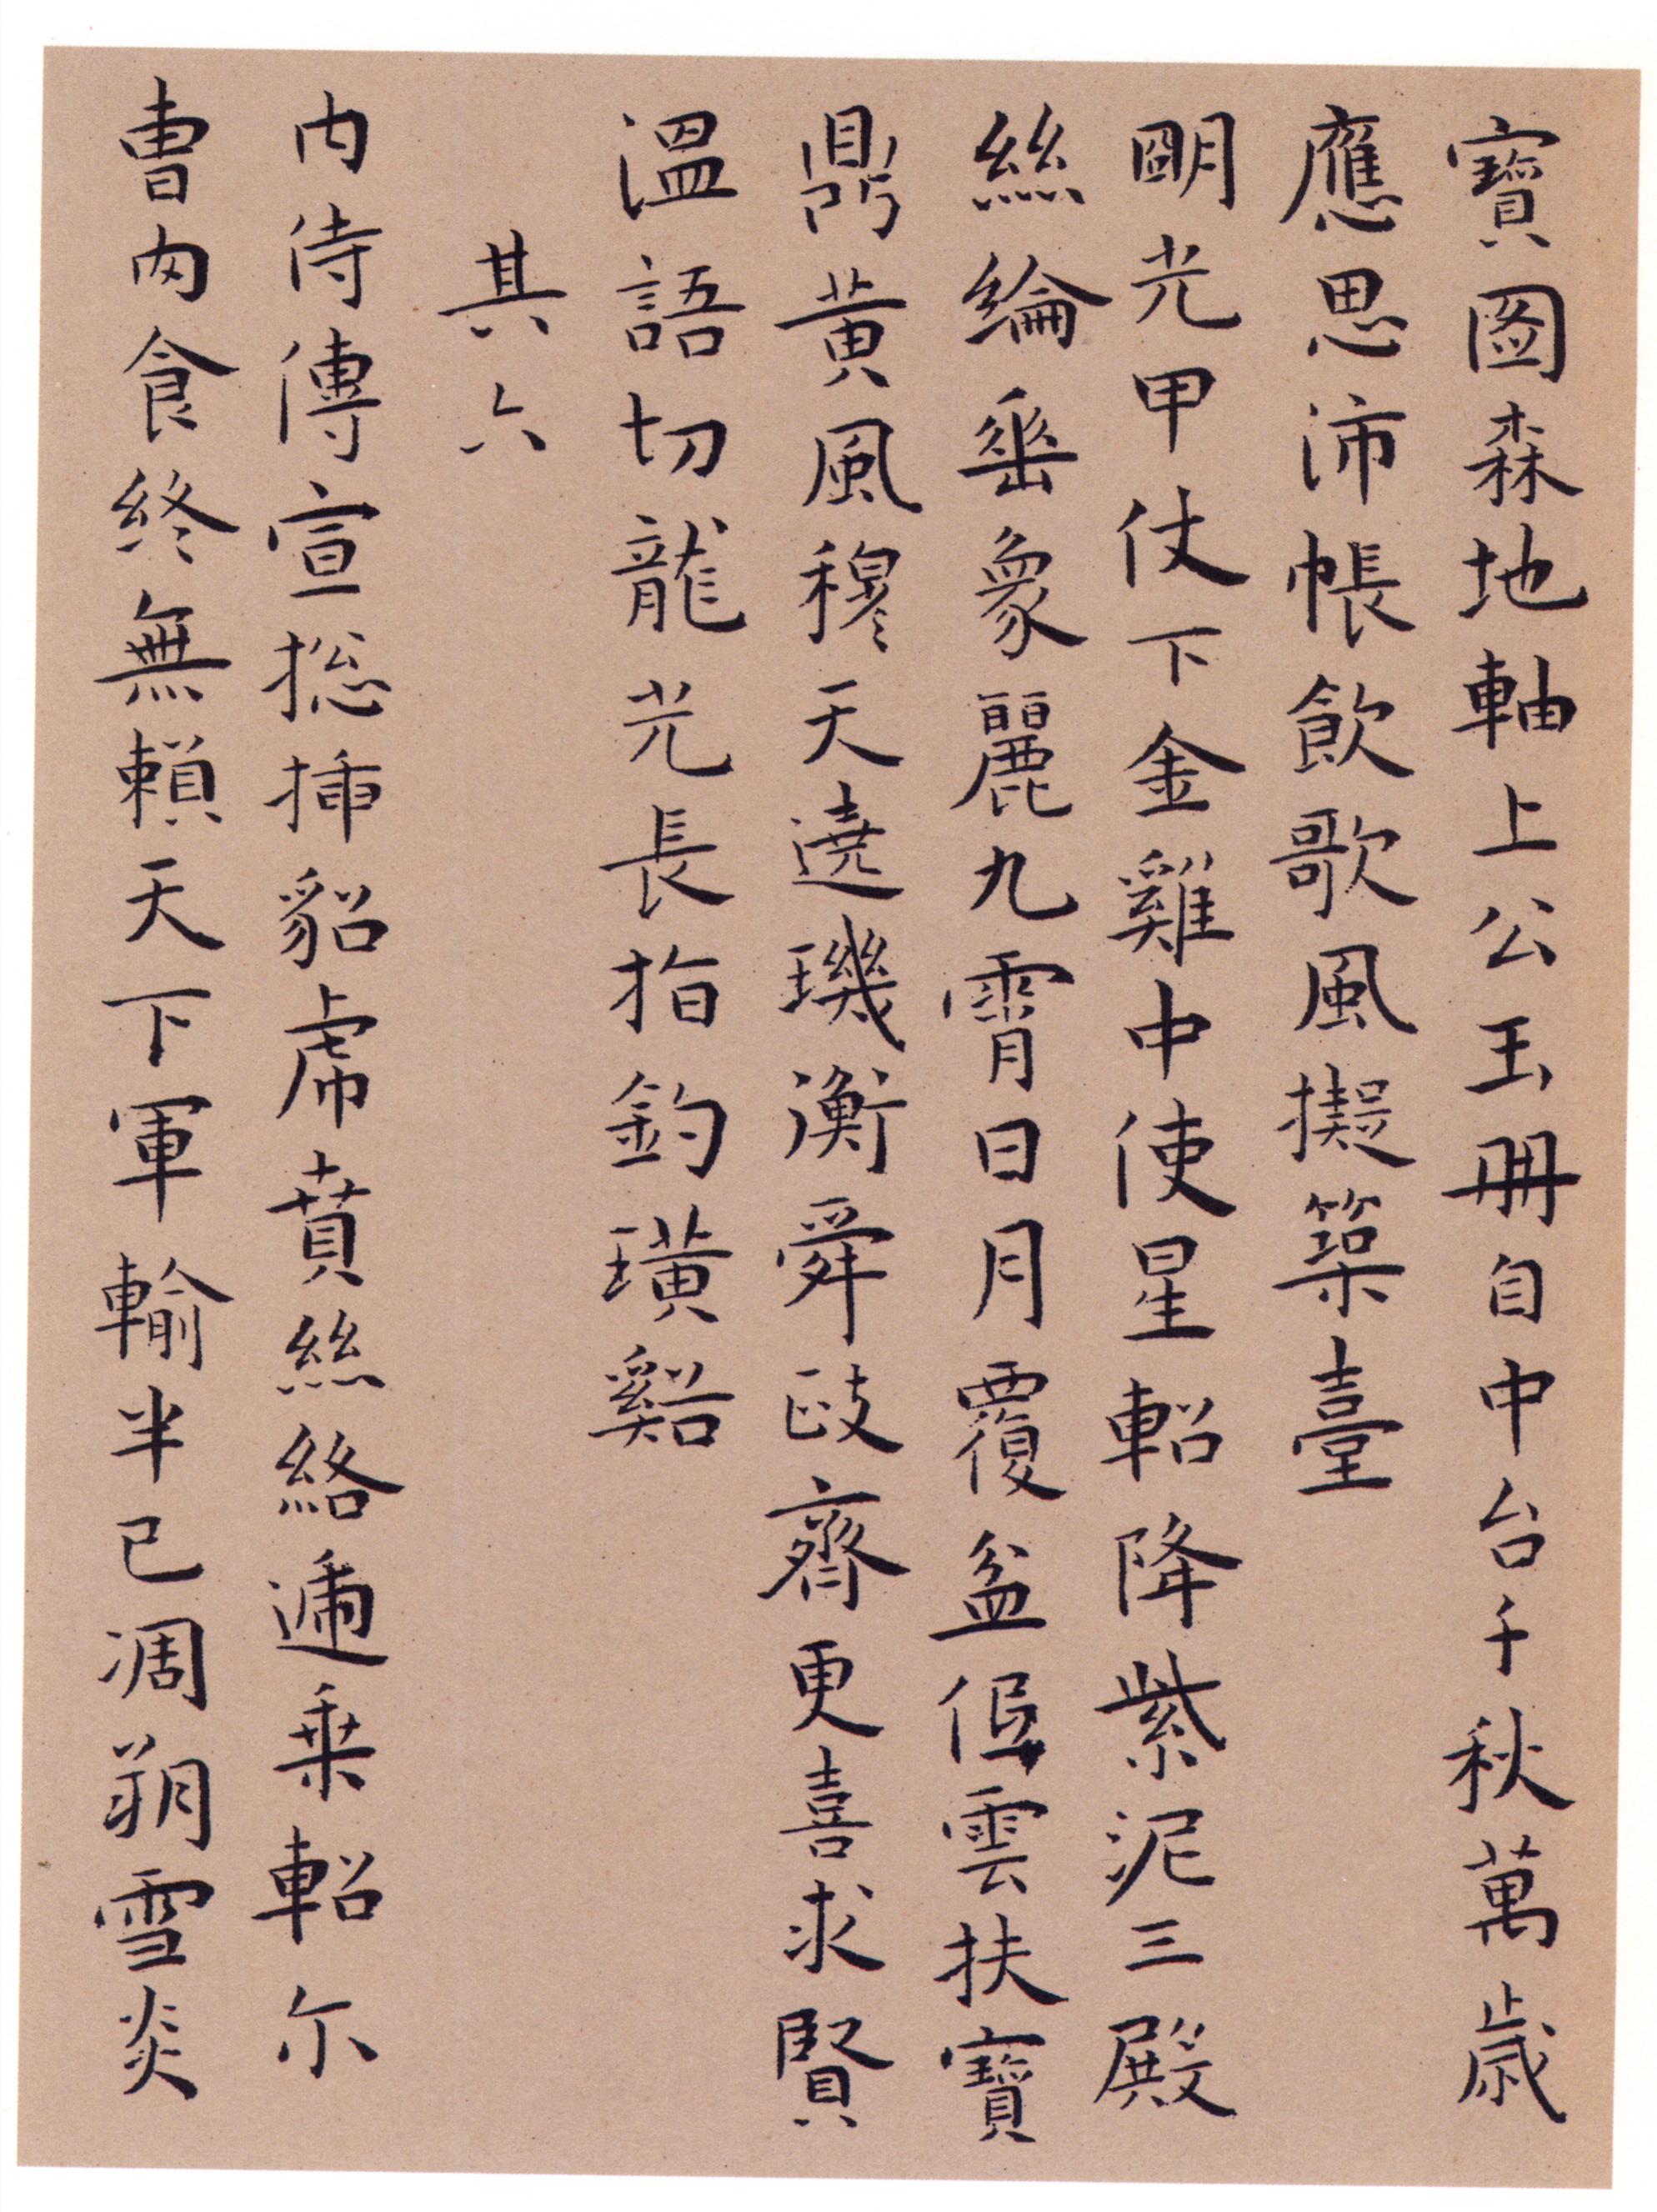 寶圖森地軸上公玉冊自中台千秋萬歲
應思沛帳飲歌風擬築臺
明光甲仗下金雞中使星軺降紫泥三殿
絲綸垂象麗九霄日月覆盆低雲扶寶
鼎黃風穆天遶璣衡舜政齊更喜求賢
溫語切龍光長指釣璜谿
其六
內侍傳宣總插貂虎賁絲絡遞乘軺尔
曹肉食終無賴天下軍輸半已凋朔雪炎